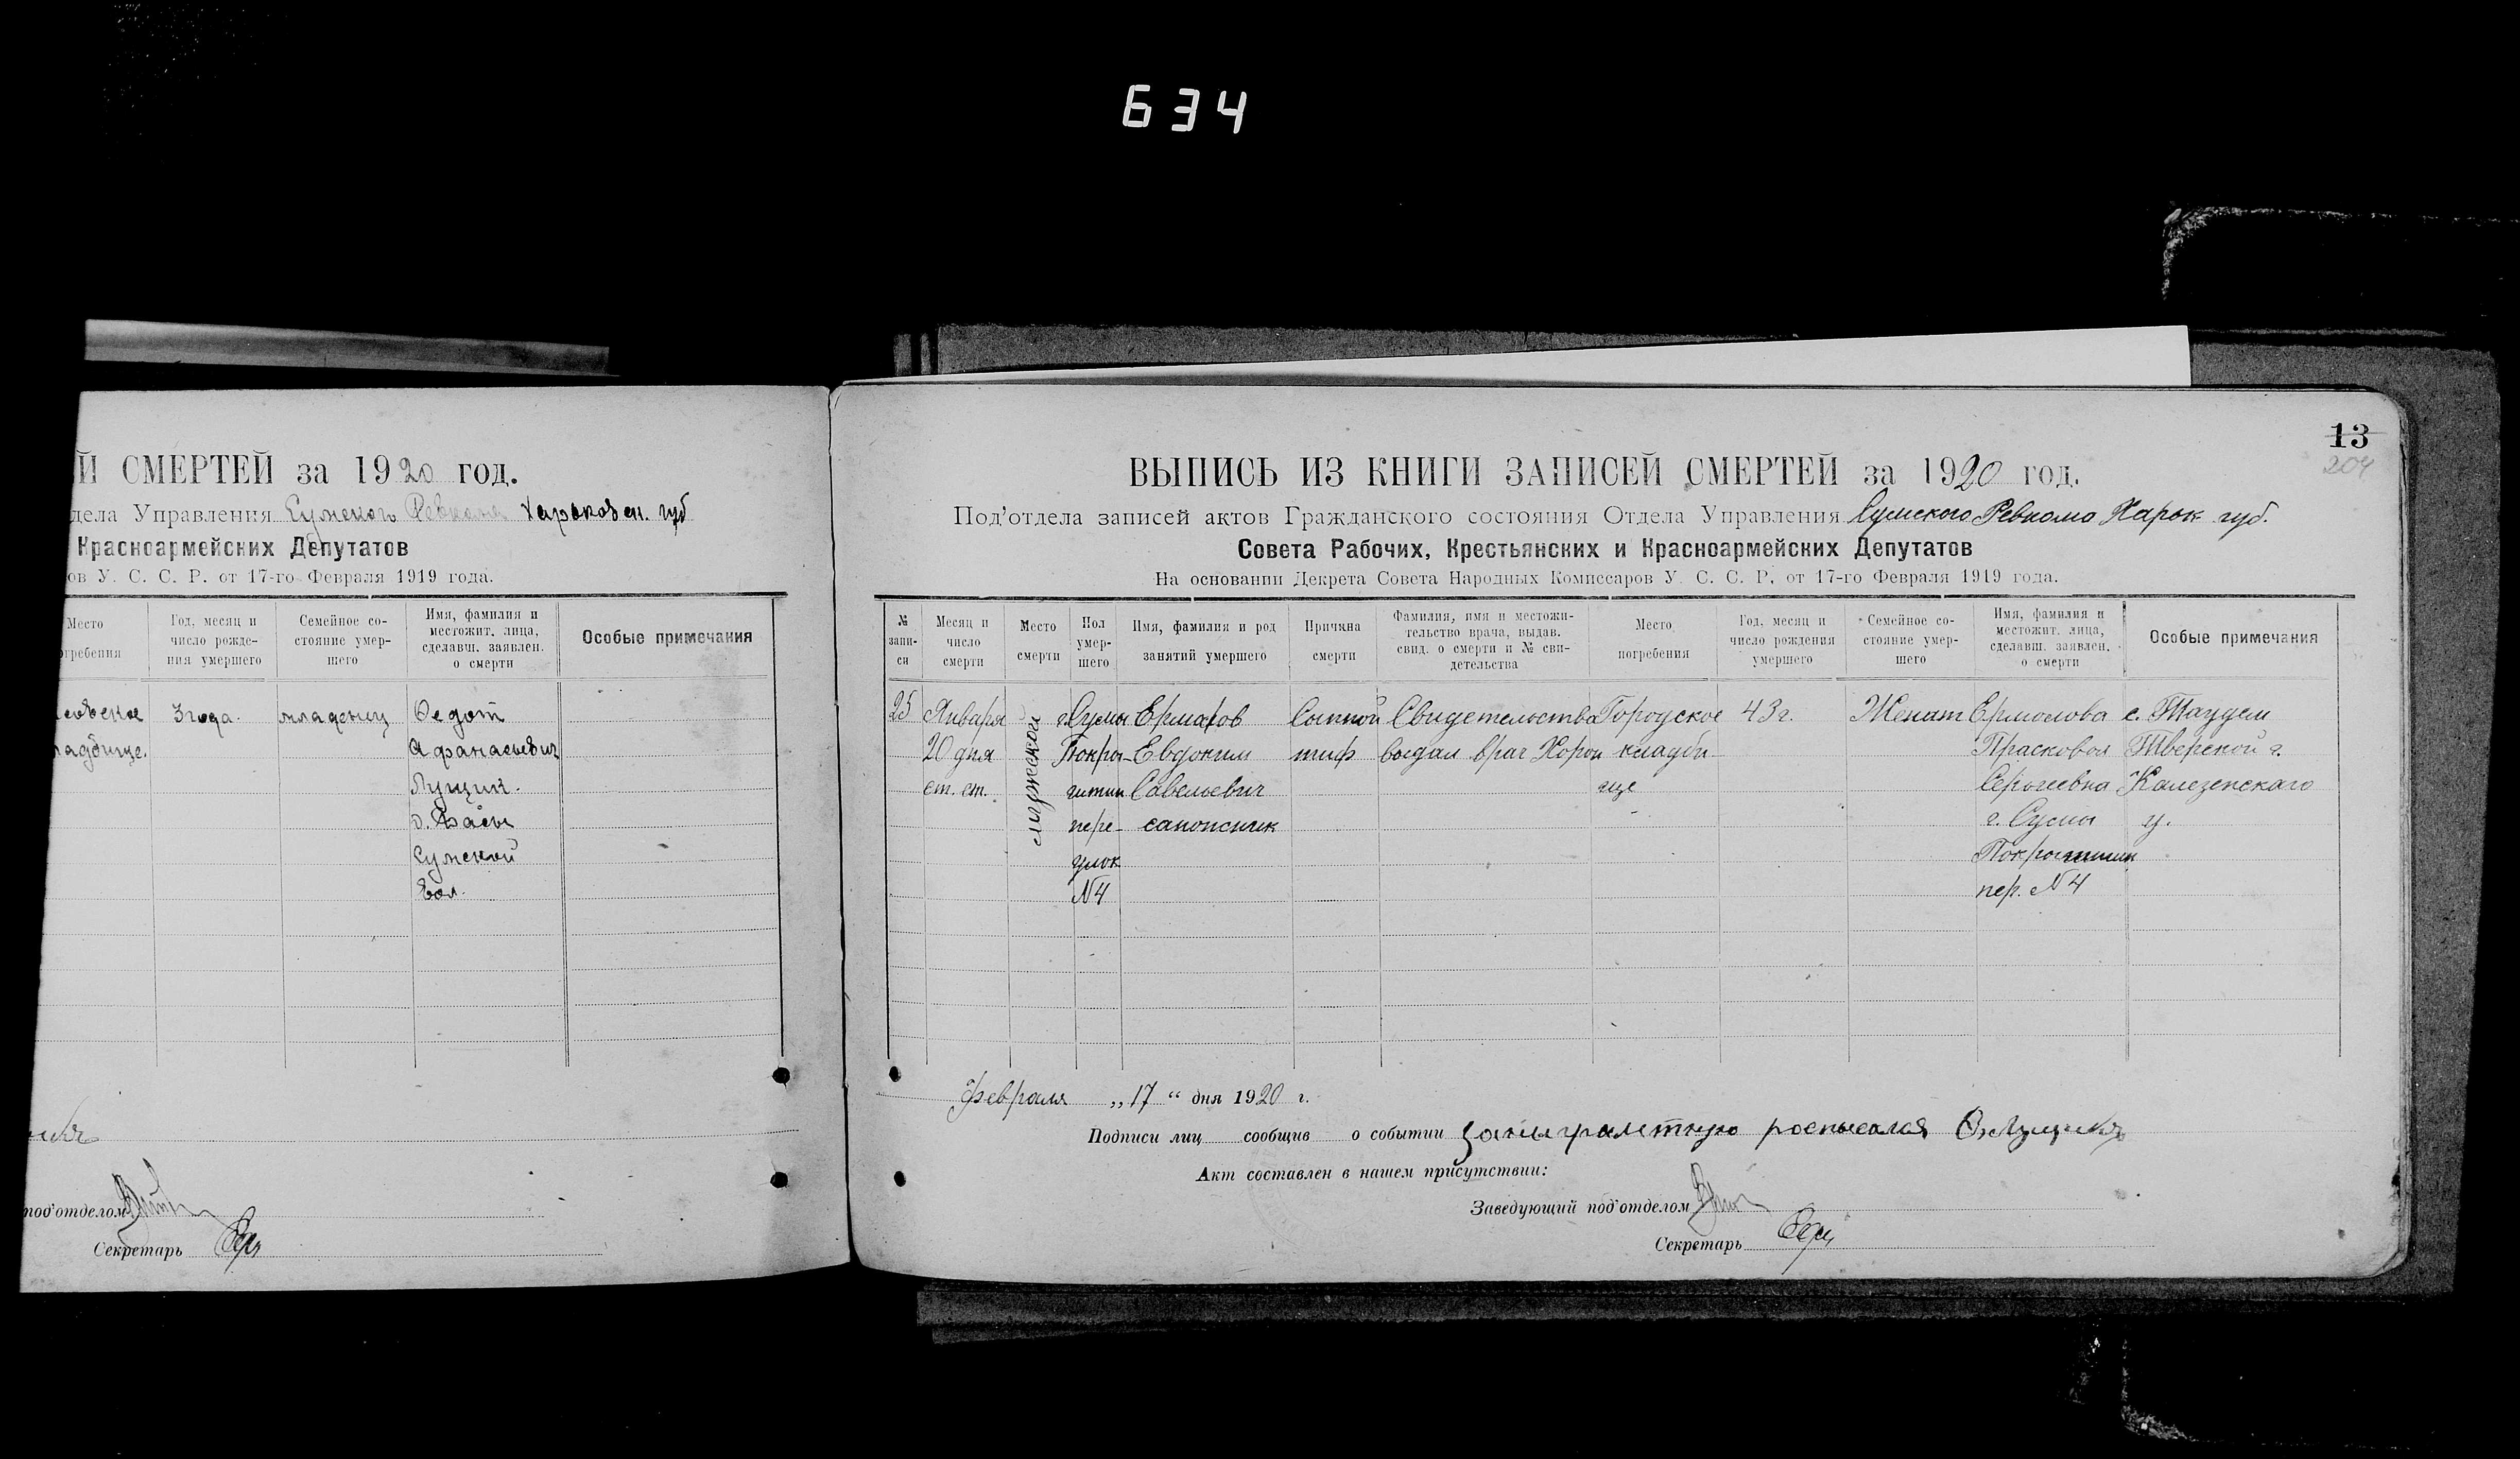 634
Й СМЕРТЕЙ за 1920 год.
дела Управления Сумского Ревкома Харьковск. губ
Красноармейских Депутатов
ов У. С. С. Р. от 17-го Февраля 1919 года.
Место
огребения
Год, месяц и
число рожде-
ния умершего
Семейное со-
стояние умер-
шего
Имя, фамилия и
местожит. лица,
сделавш. заявлен.
о смерти
Особые примечания
3 года. младенец Федот
ладбище. Афанасьевич
Лущик.
Сумской
вол.
под'отделом
Секретарь
13
204
ВЫПИСЬ ИЗ КНИГИ ЗАПИСЕЙ СМЕРТЕЙ за 1920 год.
Под'отдела записей актов Гражданского состояния Отдела Управления Сумского Ревкома Харьк губ.
Совета Рабочих, Крестьянских и Красноармейских Депутатов
На основании Декрета Совета Народных Комиссаров У. С. С. Р. от 17-го Февраля 1919 года.
№
запи-
си
Месяц и
число
смерти
Место
смерти
Пол
умер-
шего
Имя, фамилия и род
занятий умершего
Причина
смерти
Фамилия, имя и местожи-
тельство врача, выдав.
свид. о смерти и № сви-
детельства
Место
погребения
Год, месяц и
число рождения
умершего
Семейное со-
стояние умер-
шего
Имя, фамилия и
местожит. лица,
сделавш. заявлен.
о смерти
Особые примечания
25 Января г. Сумы Сыпной Свидетельства Городское 43 г. Женат Ермолова с.
20 дня Покро- Евдоким тиф выдал врач кладби Прасковья Тверской г.
ст. ст. мужеской Савельевич ще Сергеевна
пере- сапожник г. Сумы у.
улок
№ 4 пер. № 4
Февраля „17“ дня 1920 г.
Подписи лиц сообщив о событии
Акт составлен в нашем присутствии:
Заведующий под'отделом
Секретарь